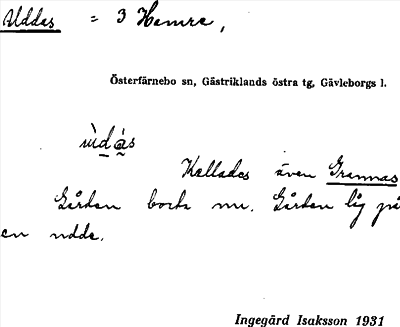 Uddas = 3 Hamre,
Österfärnebo sn, Gästriklands östra tg, Gävleborgs l.
ùdás
Kallades även Grannas
Gården borta nu. Gården låg på
en udde.
Ingegärd Isaksson 1931